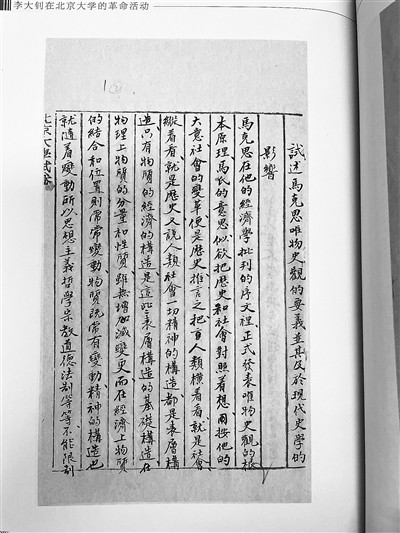 李大钊在北京大学的革命活动
試述馬克思唯物史觀的要義並其及於現代史學的
影響
馬克思在他的經濟學批判的序文裡正式發表唯物史觀的根
本原理馬氏的意思似欲把歷史和社會對照着想用按他的
大意社會的變革便是歷史推言之把人類橫着看就是社會
縱着看就是歷史又說人類社會一切精神的構造都是表層構
造只有物質的經濟的構造是這些表層構造的基礎構造在
物理上物質的分量和性質雖無增加減變更而在經濟上物質
的結合和位置則常常變動物質既常有變動精神的構造也
就隨着變動所以思想主義哲學宗教道德法制等等不能限制
北京大學試卷